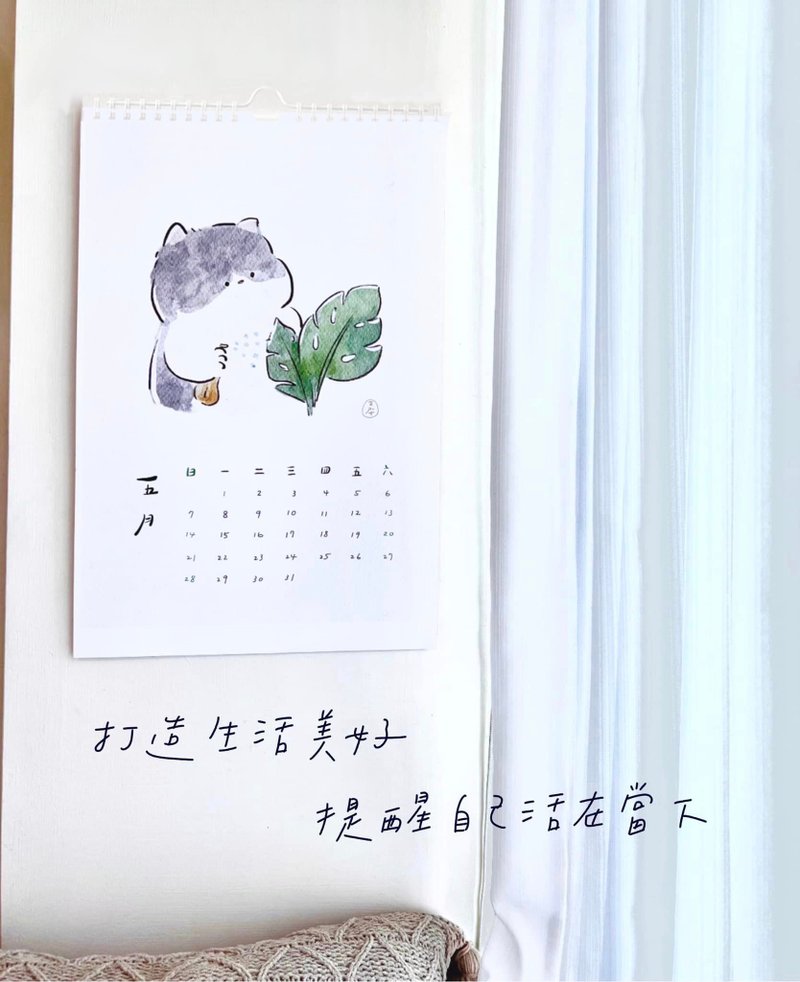 五月
日 一 二 三 四 五 六
1 2 3 4 5 6
7 8 9 10 11 12 13
14 15 16 17 18 19 20
21 22 23 24 25 26 27
28 29 30 31
打造生活美好
提醒自己活在當下